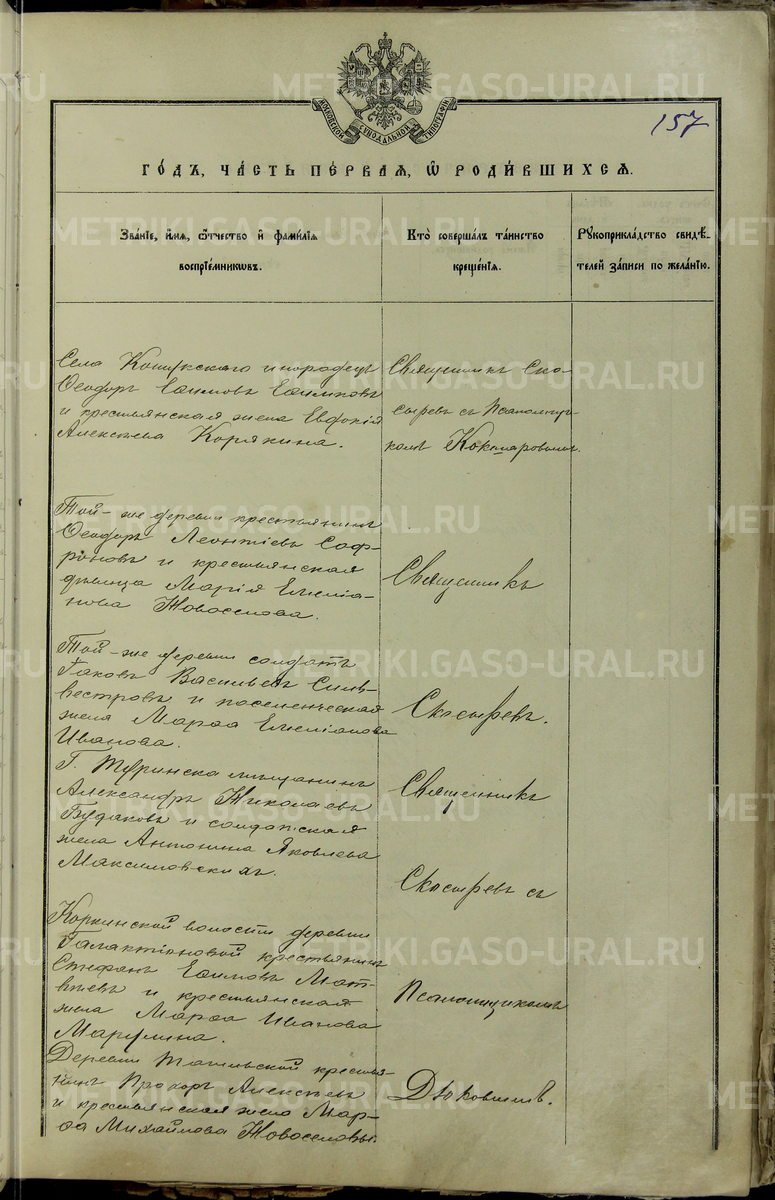 МОСКОВСКОЙ СѴНОДАЛЬНОЙ ТИПОГРАФІИ
157
ГО́ДЪ, ЧА́СТЬ ПЕ́РВАЯ, Ѽ РОДИ́ВШИХСѦ.
Зва́нїе, и҆́мѧ, ѻ҆́тчество и҆ фами́лїѧ
воспрїе́мникѡвъ.
Кто̀ соверша́лъ та́инство
креще́нїѧ.
Рꙋкоприкла́дство свидѣ́-
телей за́писи по жела́нїю.
Села инородецъ
Ѳеодоръ Евѳимовъ
и крестьянская жена Евдокія
Алексѣева Корякина.
Священникъ Ско-
сыревъ съ Псаломщи-
комъ
Той-же деревни крестьянинъ
Ѳеодоръ Леонтіевъ Соф-
роновъ и крестьянская
дѣвица Марія Емеліа-
нова Новоселова.
Священникъ
Той-же деревни солдатъ
Іаковъ Васильевъ Силь-
вестровъ и поселенческая
жена Марѳа Емеліанова
Иванова.
Скосыревъ.
Г. Туринска мѣщанинъ
Александръ Николаевъ
Будаковъ и солдатская
жена Антонина Яковлева
Максимовскихъ.
Священникъ
Скосыревъ съ
Коркинской волости деревни
Галактіоновой крестьянинъ
Стефанъ Евѳимовъ Мат-
вѣевъ и крестьянская
жена Марѳа Иванова
Псаломщикомъ
Деревни крестья-
нинъ Прохоръ Алексѣевъ
и крестьянская жена Мар-
ѳа Михайлова Новоселовы.
METRIKI.GASO-URAL.RU